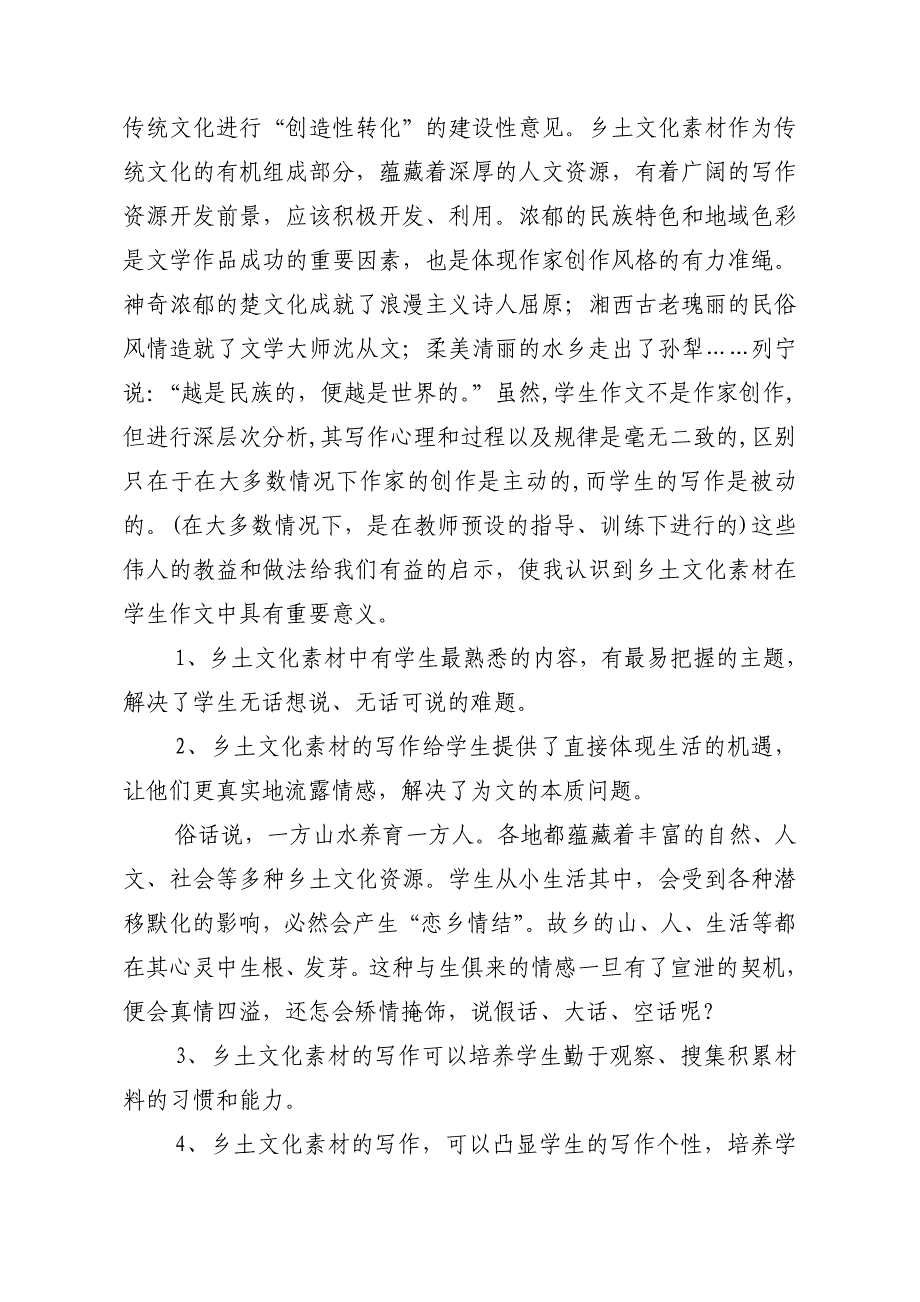 传统文化进行“创造性转化”的建设性意见。乡土文化素材作为传
统文化的有机组成部分，蕴藏着深厚的人文资源，有着广阔的写作
资源开发前景，应该积极开发、利用。浓郁的民族特色和地域色彩
是文学作品成功的重要因素，也是体现作家创作风格的有力准绳。
神奇浓郁的楚文化成就了浪漫主义诗人屈原；湘西古老瑰丽的民俗
风情造就了文学大师沈从文；柔美清丽的水乡走出了孙犁……列宁
说：“越是民族的，便越是世界的。”虽然,学生作文不是作家创作,
但进行深层次分析,其写作心理和过程以及规律是毫无二致的,区别
只在于在大多数情况下作家的创作是主动的,而学生的写作是被动
的。(在大多数情况下，是在教师预设的指导、训练下进行的)这些
伟人的教益和做法给我们有益的启示，使我认识到乡土文化素材在
学生作文中具有重要意义。
1、乡土文化素材中有学生最熟悉的内容，有最易把握的主题，
解决了学生无话想说、无话可说的难题。
2、乡土文化素材的写作给学生提供了直接体现生活的机遇，
让他们更真实地流露情感，解决了为文的本质问题。
俗话说，一方山水养育一方人。各地都蕴藏着丰富的自然、人
文、社会等多种乡土文化资源。学生从小生活其中，会受到各种潜
移默化的影响，必然会产生“恋乡情结”。故乡的山、人、生活等都
在其心灵中生根、发芽。这种与生俱来的情感一旦有了宣泄的契机，
便会真情四溢，还怎会矫情掩饰，说假话、大话、空话呢？
3、乡土文化素材的写作可以培养学生勤于观察、搜集积累材
料的习惯和能力。
4、乡土文化素材的写作，可以凸显学生的写作个性，培养学